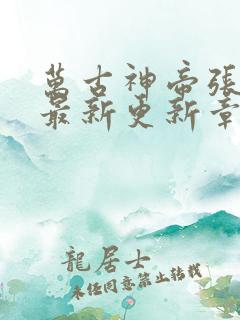 萬古神帝張
最新更新章
龍居士
未经同意禁止转载